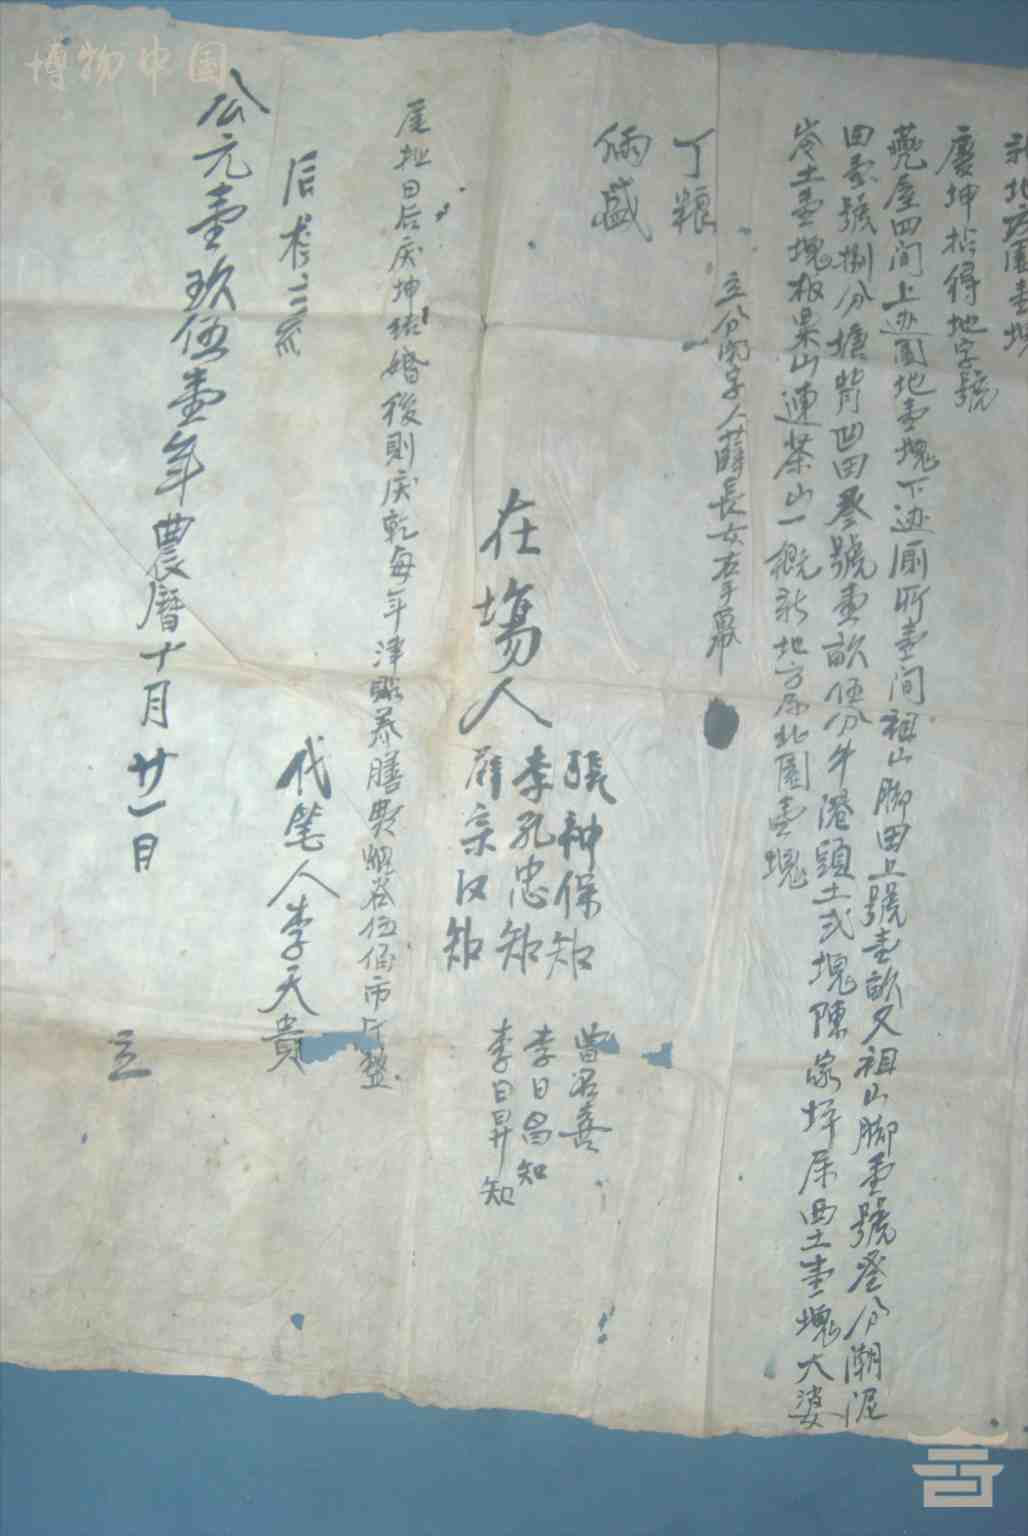 新地方園壹塊
慶坤拈得地字號
蕘屋四间上边園地壹塊下边厠所壹间祖山脚田上號壹畝又祖山脚壹號叁分潮泥
田壹號捌分塘背凹田叁號壹畝伍分牛港頭土弍塊陳家坪屋西土壹塊大婆
岺土壹塊板栗山連茶山一概新地方屋北園壹塊
丁粮
俩盛
立分関字人薛長女右手幕
在塲人
張神保知
李孔忠知
薛宗汉知
曹名善
李日昌知
李日昇知
尾批日后庆坤结婚後則庆乾每年津贴养膳熟穀谷伍佰市斤整
后栏二
代笔人李天貴
公元壹玖伍壹年農曆十月廿一日
立
博物中国